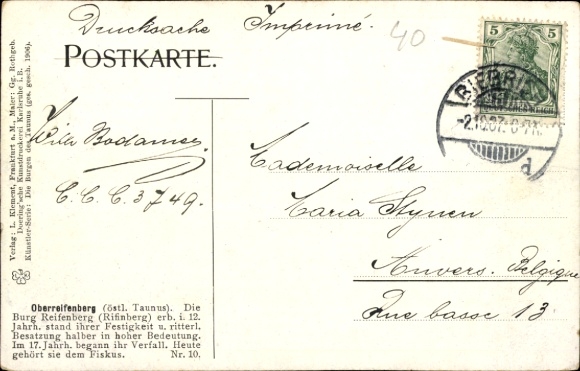 Drucksache Imprimé.
40
POSTKARTE.
5 5
BIEBRICH
-2.10.07. 6-7N.
d
Bodamer
C. C. C. 3749.
Mademoiselle
Maria Stynen
Anvers. Belgique
Rue basse 13
Verlag: L. Klement, Frankfurt a. M., Maler: Gg. Rothgeb.
Doering'sche Kunstdruckerei Karlsruhe i. B.
Künstler-Serie: Die Burgen des Taunus (ges. gesch. 1906).
Oberreifenberg (östl. Taunus). Die
Burg Reifenberg (Rifinberg) erb. i. 12.
Jahrh. stand ihrer Festigkeit u. ritterl.
Besatzung halber in hoher Bedeutung.
Im 17. Jahrh. begann ihr Verfall. Heute
gehört sie dem Fiskus. Nr. 10.